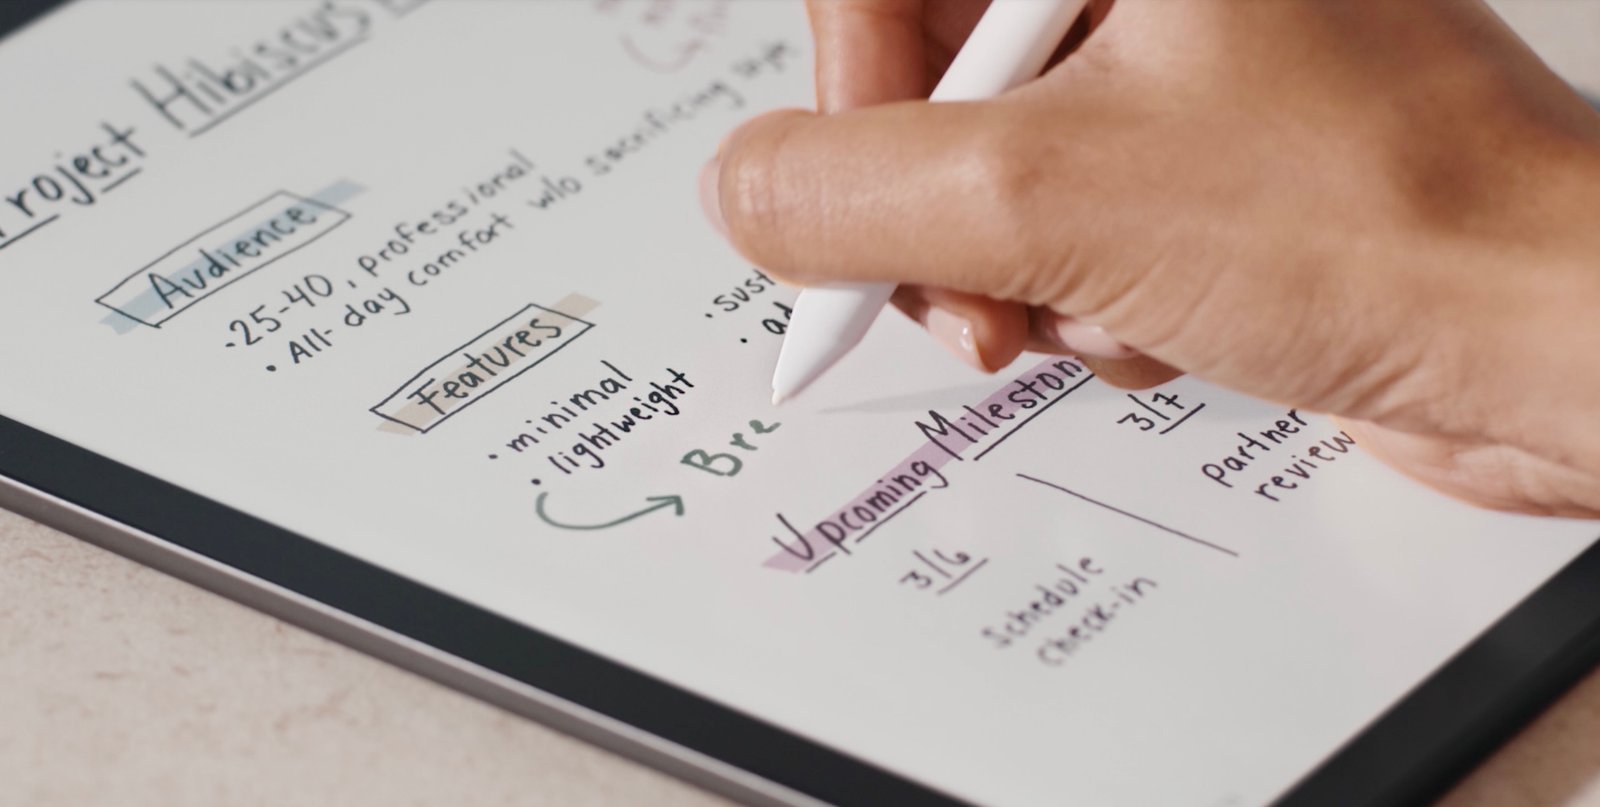 Project Hibiscus
Audience
· 25-40, professional
• All-day comfort w/o sacrificing style
Features
• minimal
• lightweight
Bre
Upcoming Mileston
3/6
Schedule
check-in
3/7
partner
review